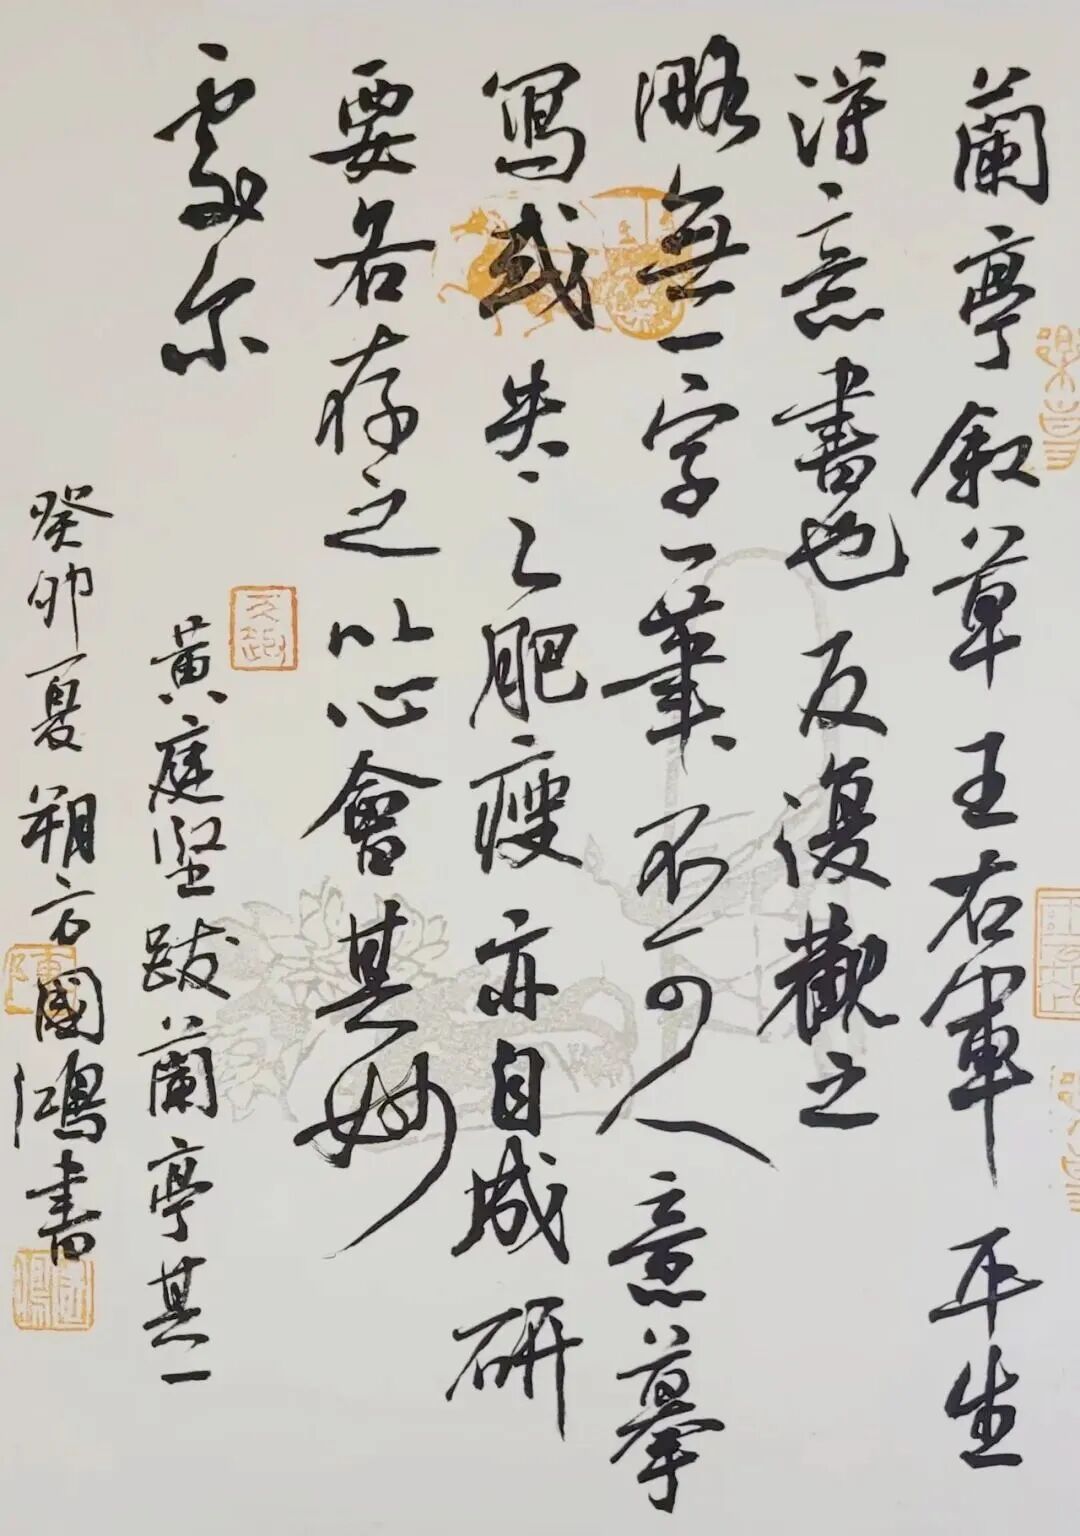 蘭亭叙草王右軍平生
得意書也反復觀之
略無一字一筆不可人意摹
寫或失之肥瘦亦自成研
要各存之以心會其妙
處尔
黄庭坚跋蘭亭其一
癸卯夏朔方國鴻書